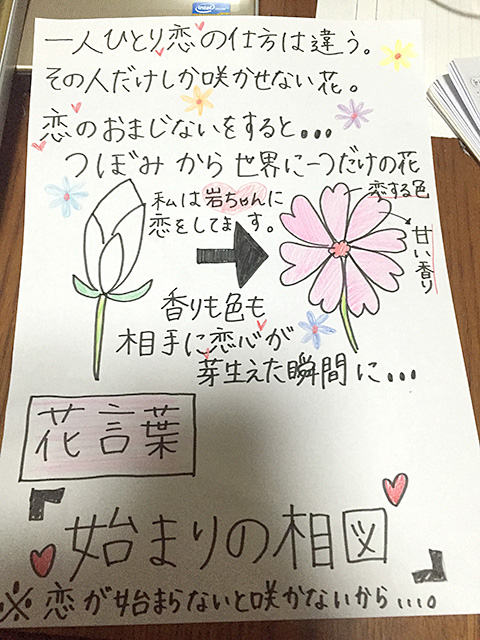 intel
一人ひとり恋の仕方は違う。
その人だけしか咲かせない花。
恋のおまじないをすると...
つぼみから世界に一つだけの花
私は岩ちゃんに
恋をしてます。
恋する色
甘い香り
香りも色も
相手に恋心が
芽生えた瞬間に...
花言葉
『始まりの相図』
※恋が始まらないと咲かないから....。